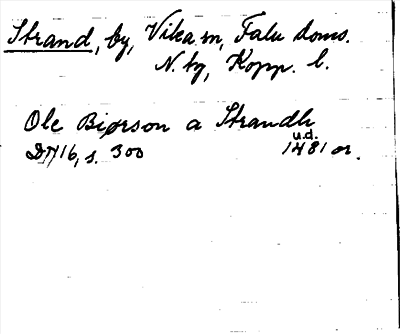 Strand, by, Vika sn, Falu doms.
N. tg, Kopp. l.
Ole Biørson a Strandh
u.d.
DN 16, s. 300 1481 or.